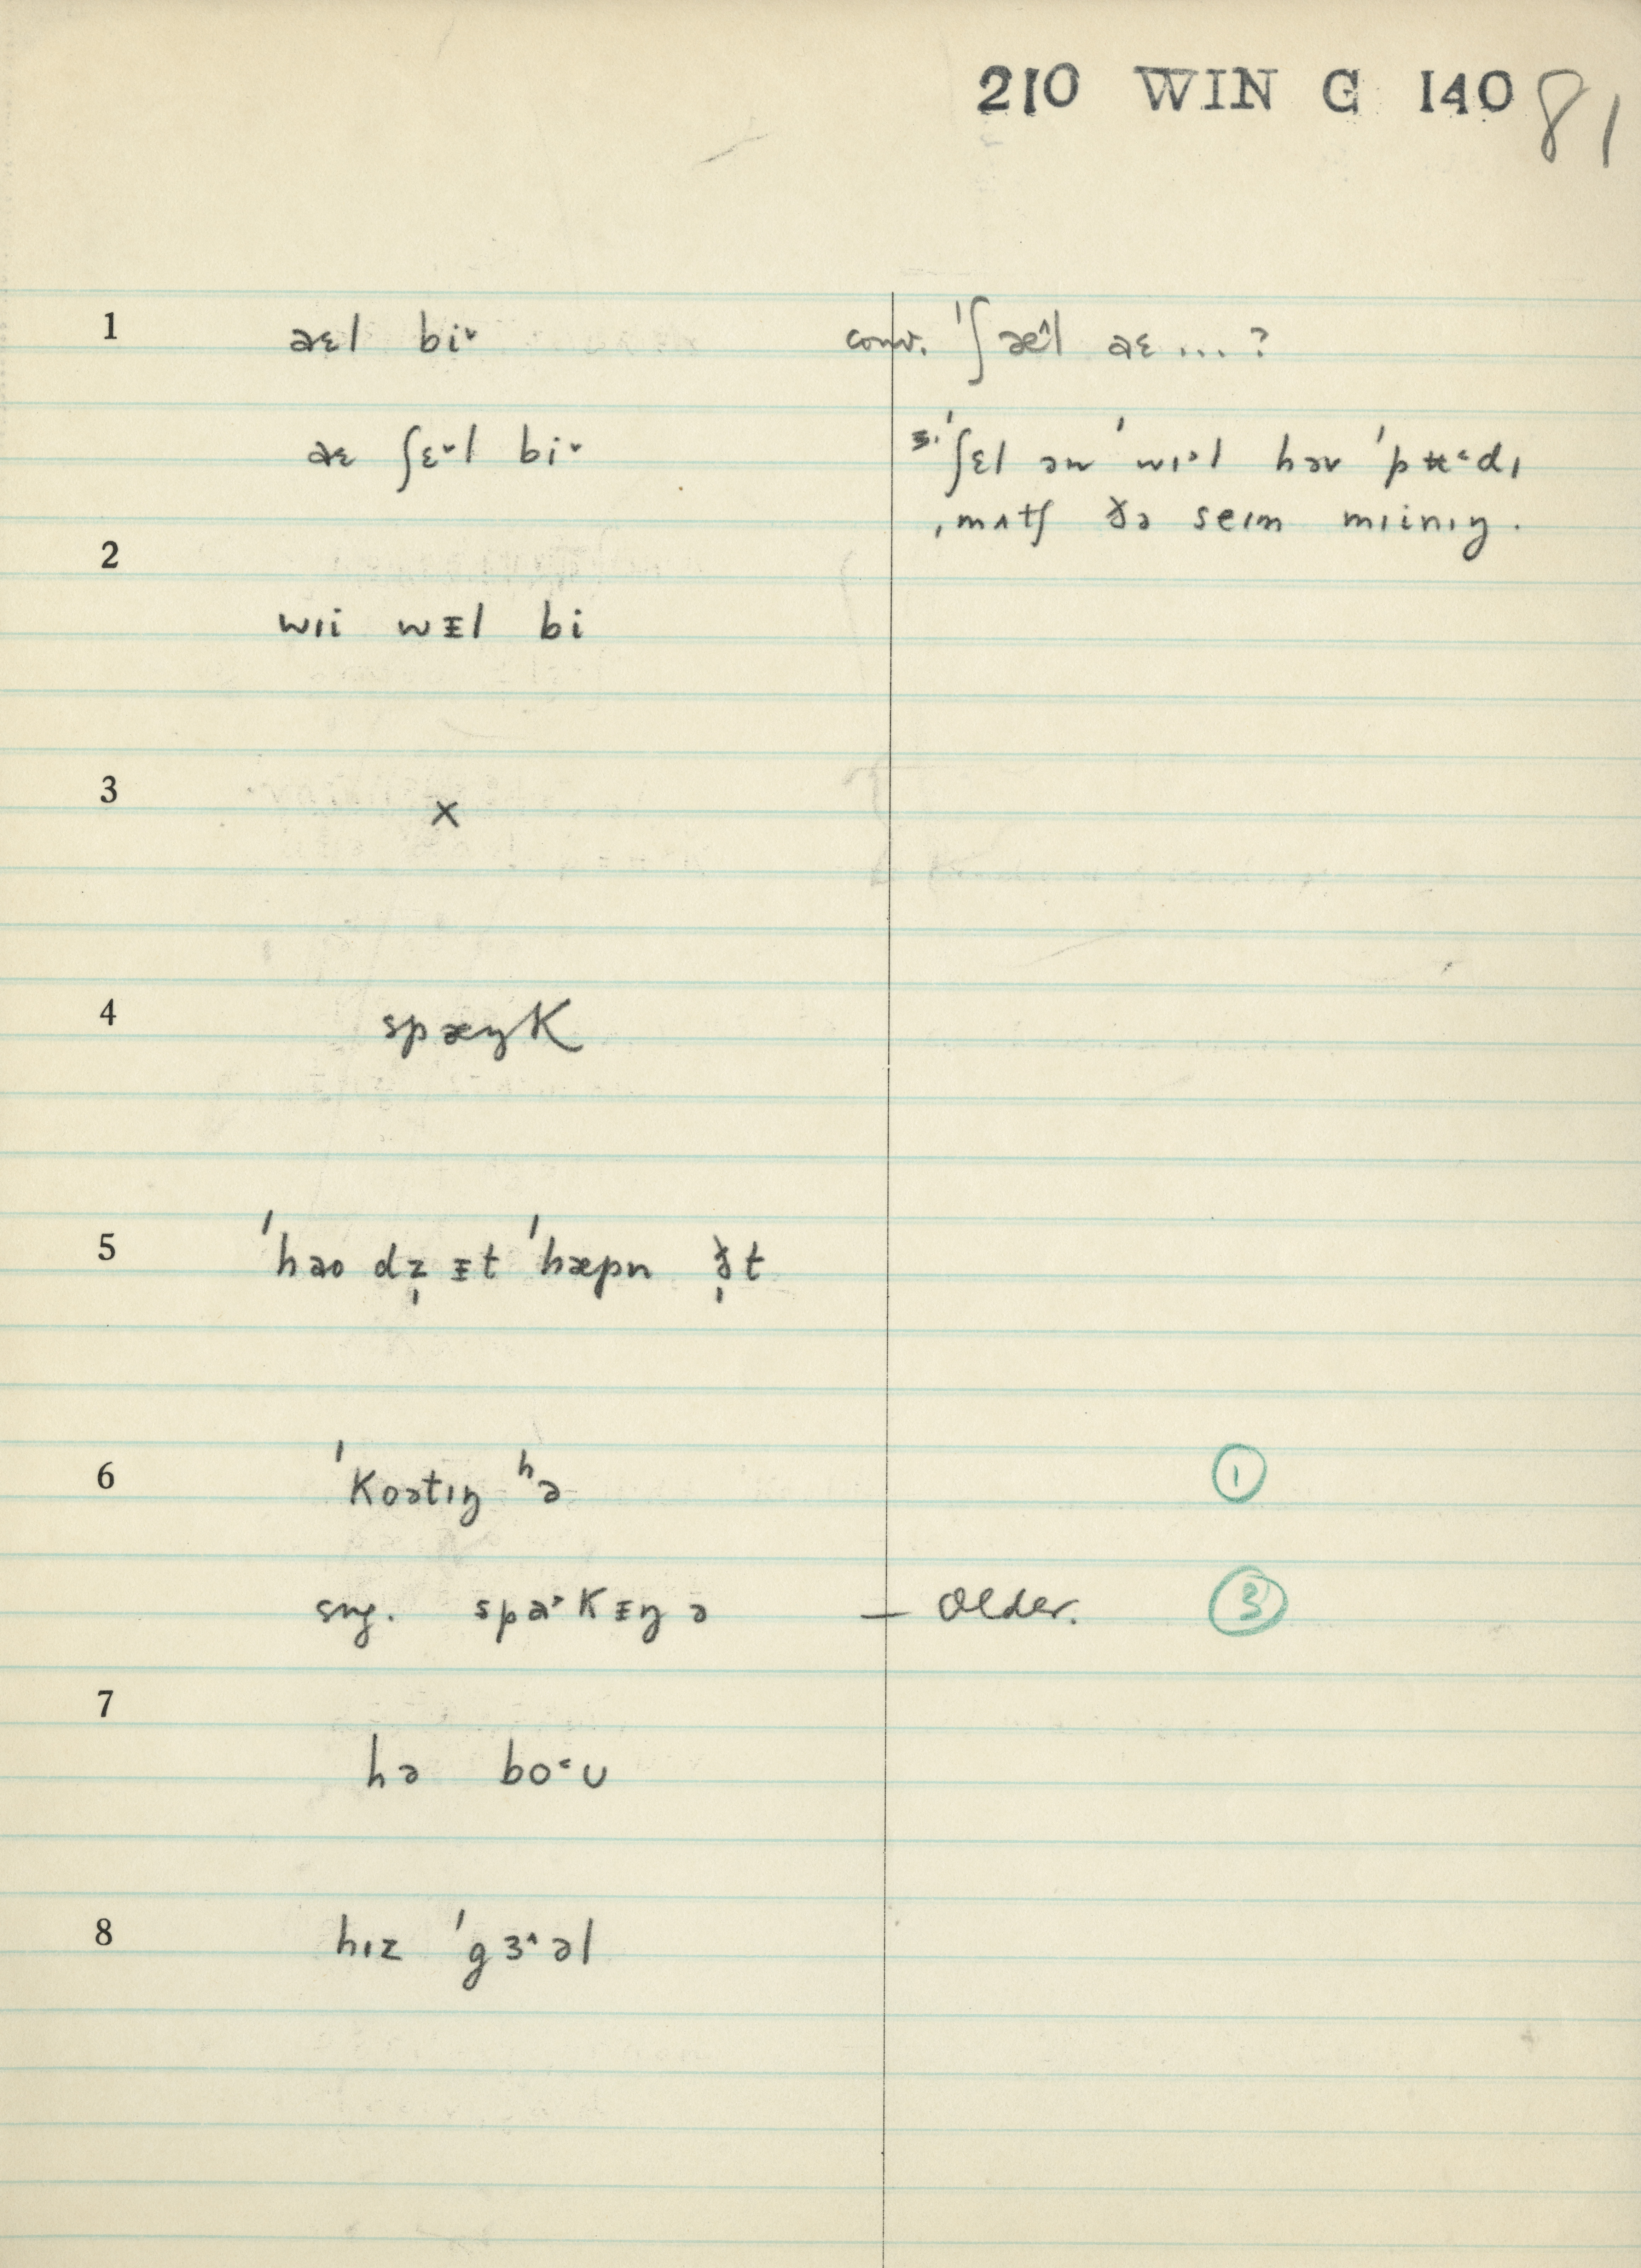 210 WIN G 140 81
1 aɛl bi˅ conv. ˈʃæ^l aɛ ... ?
aɛ ʃɛ˅l bi˅ s.i. ˈʃɛl ən ˈwɪ˒l həv ˈpʁ˂dɪ
ˌmʌtʃ ðə seɪm mɪinɪŋ.
2
wɪi wᵻl bi
3 ×
4 spæŋK
5 ˈhəo dz̩ ᵻt ˈhæpn ð̩t
6 ˈKoətɪŋ ʰə ①
sug. spa˒Kᵻŋ ə — Older. ③
7
hə bo˂ʊ
8 hɪz ˈgɜ^əl